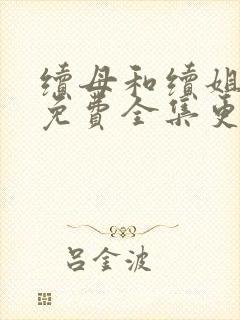 续母和续姐
免费全集更
吕金波